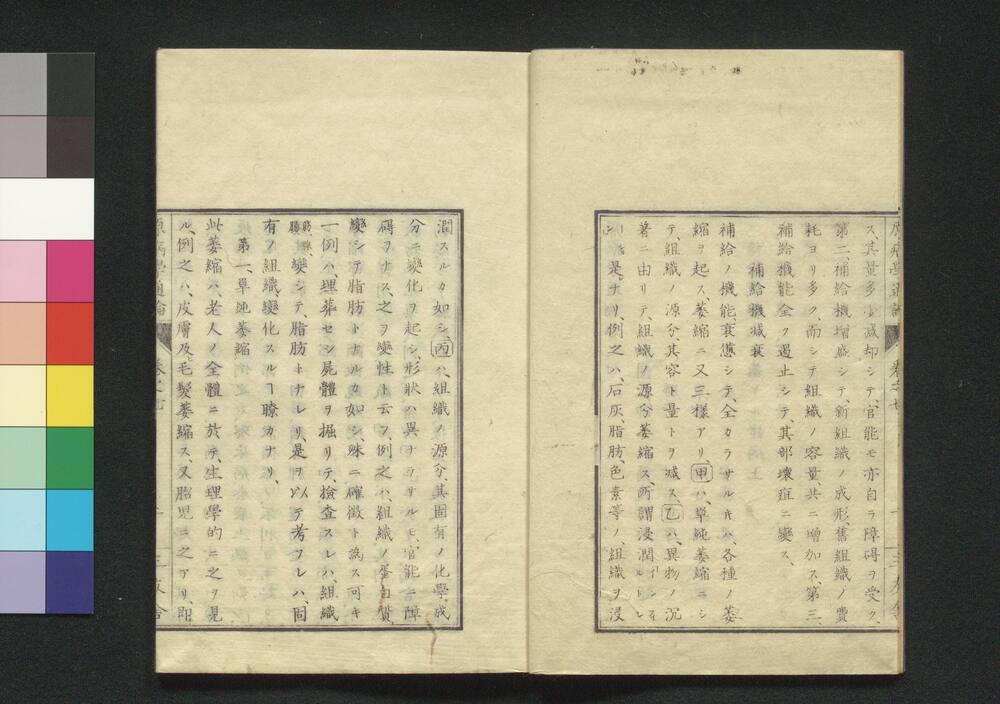 ス、其量多少減却シテ、官能モ亦自ラ障碍ヲ受ク、
第二、補給機増盛シテ、新組織ノ成形、舊組織ノ費
耗ヨリ多ク、而シテ組織ノ容量、共ニ増加ス、第三、
補給機能全ク遏止シテ、其部壊疽ニ變ス、
補給機減衰
補給ノ機能、衰憊シテ、全カラサル𪜈ハ、各種ノ萎
縮ヲ起ス、萎縮ニ又三様アリ、甲ハ、單純萎縮ニシ
テ、組織ノ源分、其容ト量トヲ減ス、乙ハ、異物ノ沉
著ニ由リテ、組織ノ源分萎縮ス、所謂浸潤
是ナリ、例之ハ、石灰、脂肪、色素等ノ、組織ヲ浸
潤スルカ如シ、丙ハ、組織ノ源分、其固有ノ化學成
分ニ變化ヲ起シ、形狀ハ異ナラサルモ、官能ニ障
碍ヲナス、之ヲ變性ト云フ、例之ハ、組織ノ蛋白質、
變シテ脂肪トナルカ如シ、殊ニ確徴ト爲ス可キ
一例ハ、埋葬セシ屍體ヲ掘リテ、撿査スレハ、組織
變シテ、脂肪トナレリ、是ヲ以テ考フレハ、固
有ノ組織、變化スルヿ瞭カナリ、
第一、單純萎縮
此萎縮ハ、老人ノ全體ニ於テ、生理學的ニ之ヲ見
ル、例之ハ、皮膚及ヒ毛髮萎縮ス、又胎児ニ之アリ、即
原病學通論 巻之七